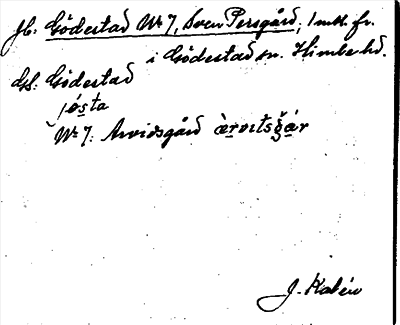 Jb: Gödestad Nr 7, Sven Persgård; 1 mtl. fr.
i Gödestad sn. Himle hd.
Gd: Gödestad
jøsta
Nr 7: Arvidsgård àrvıtsgár
J. Kalén